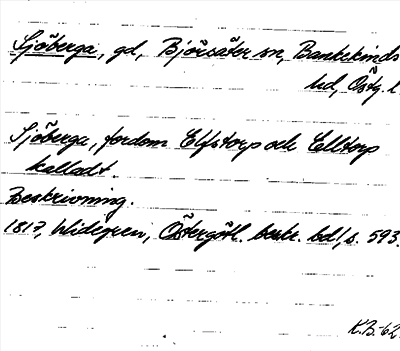 Sjöberga, gd, Björsäter sn, Bankekinds
hd, Östg. l.
Sjöberga, fordom Elfstorp och Elltorp
kalladt.
Beskrivning.
1817, Widegren, Östergötl. beskr. bd 1, s. 593.
K.B.-62.